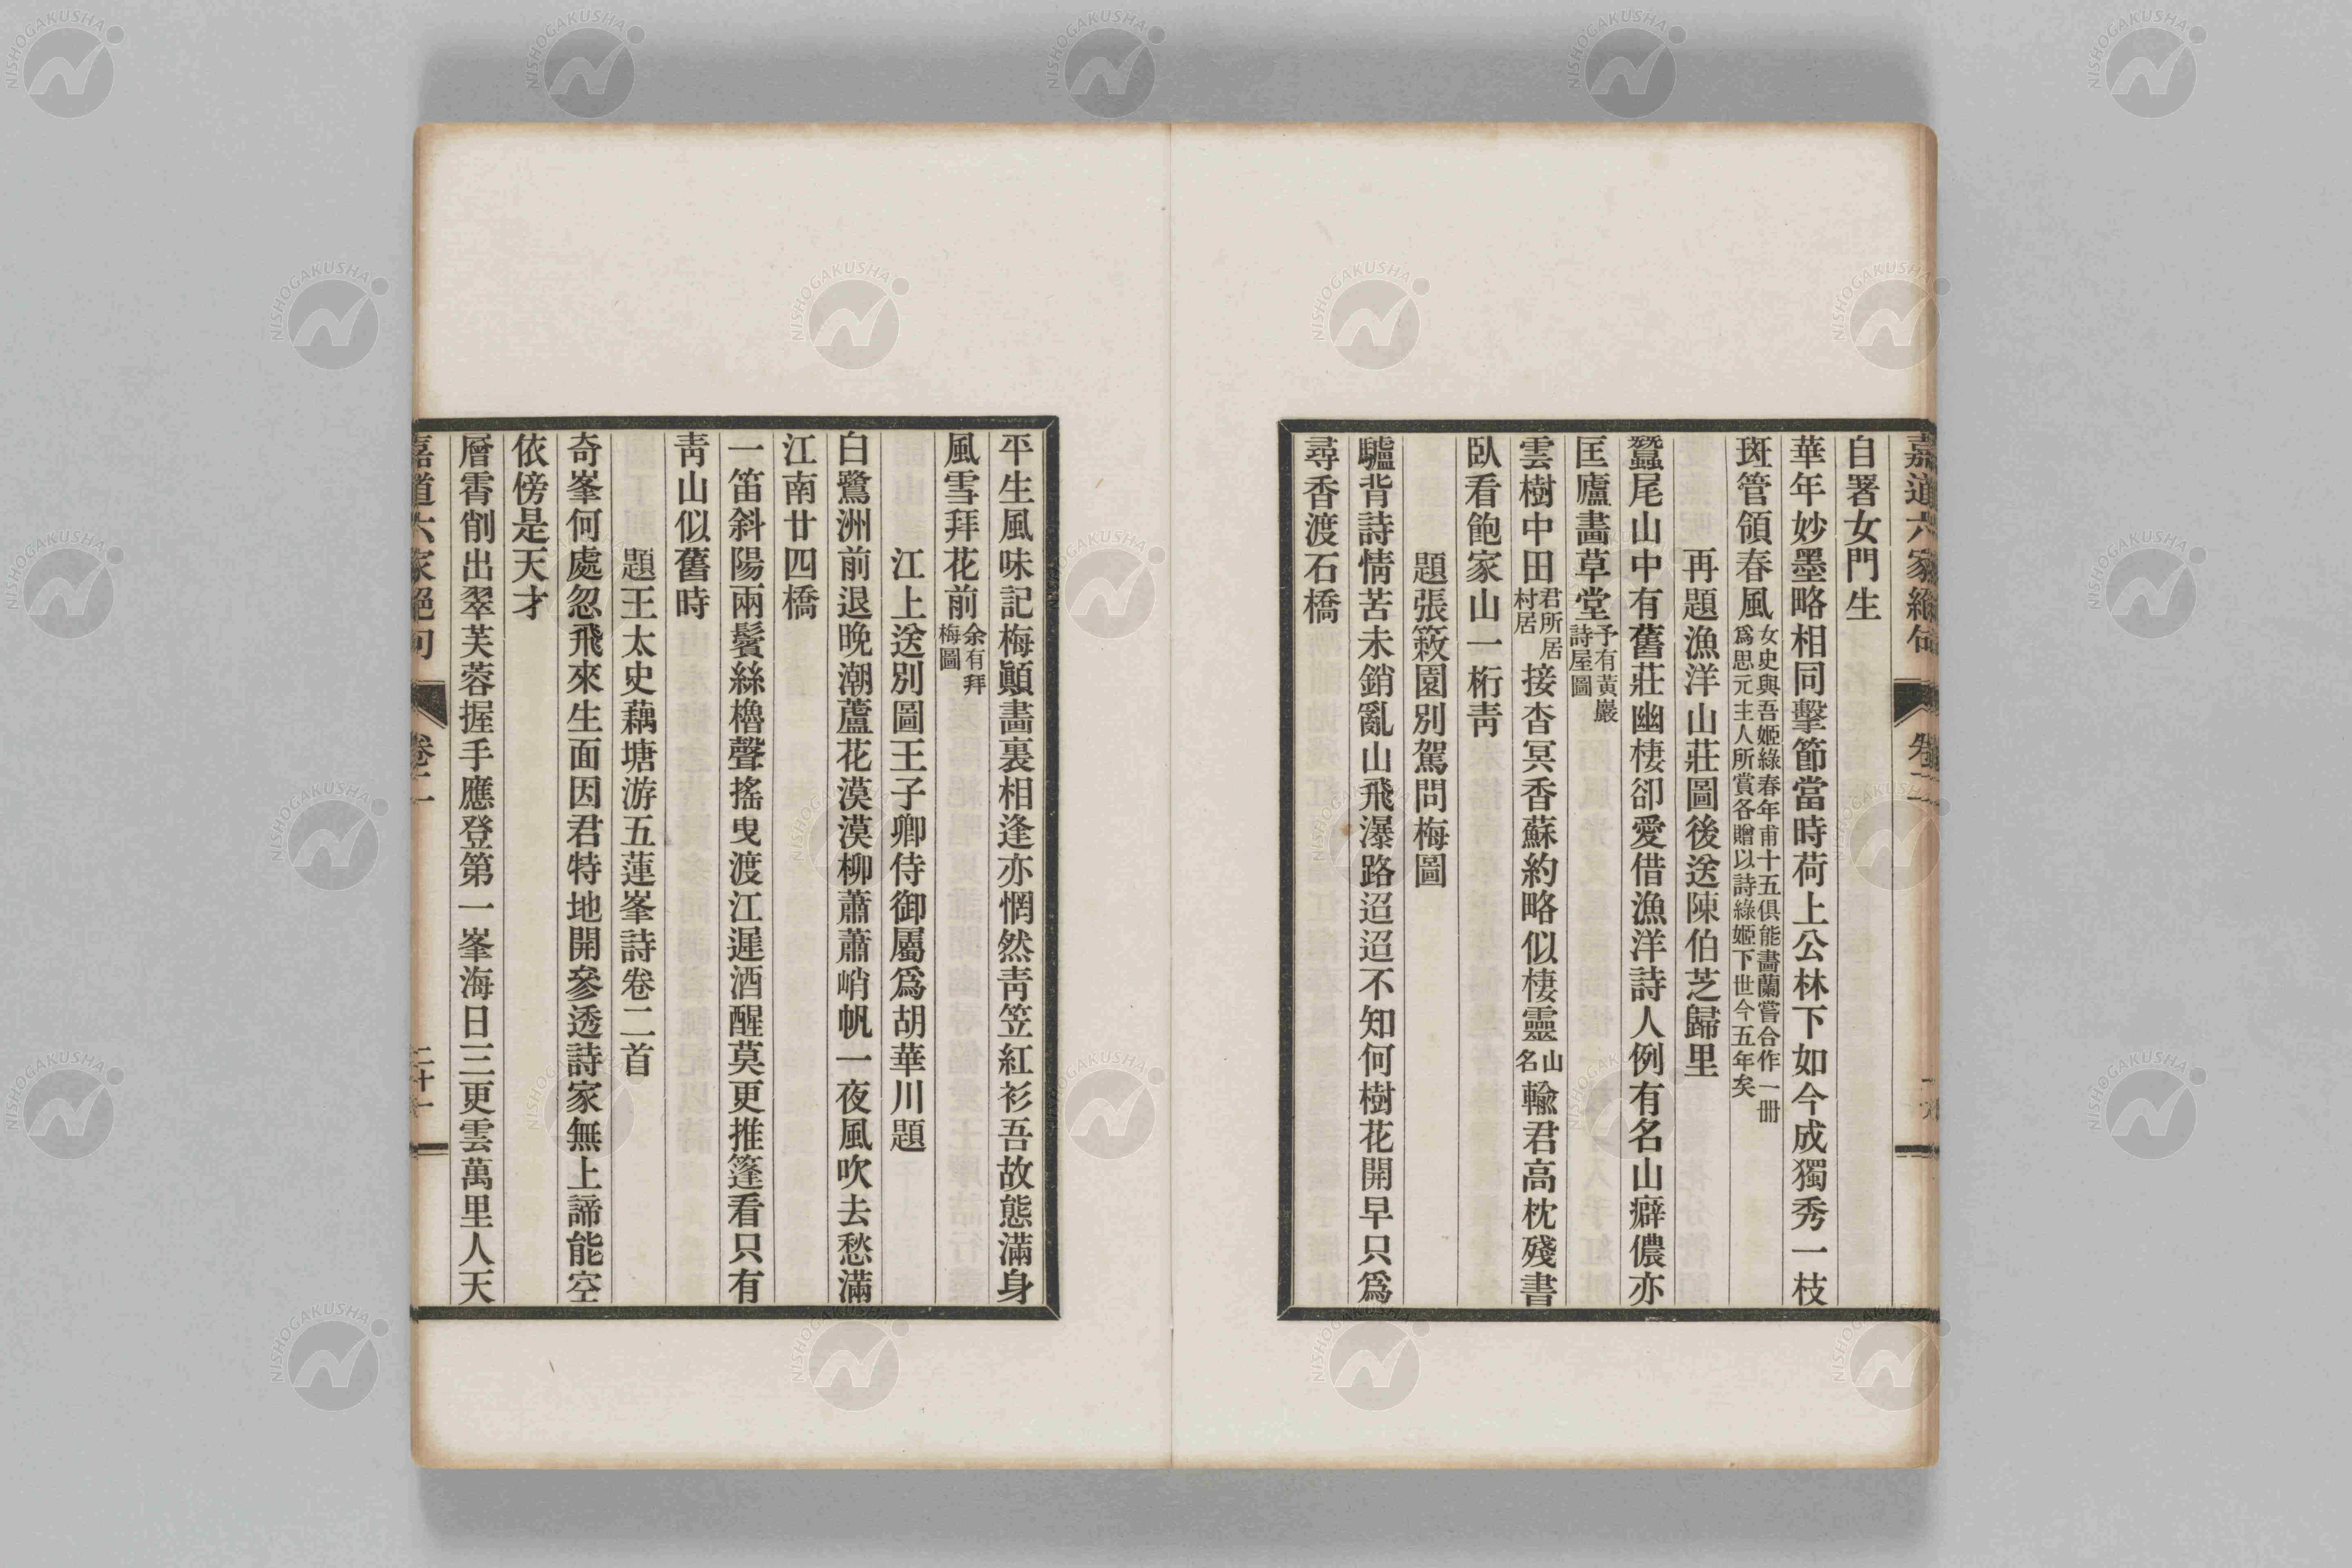 嘉道六家絶句
卷二
自署女門生
華年妙墨略相同擊節當時荷上公林下如今成獨秀一枝
斑管領春風女史與吾姬綠春年甫十五俱能畫蘭嘗合作一冊爲思元主人所賞各贈以詩綠姬下世今五年矣
再題漁洋山莊圖後送陳伯芝歸里
蠶尾山中有舊莊幽棲卻愛借漁洋詩人例有名山癖儂亦
匡廬畫草堂予有黃巖詩屋圖
雲樹中田君所居村居接杳冥香蘇約略似棲靈山名輸君高枕殘書
臥看鮑家山一桁靑
題張籢園別駕問梅圖
驢背詩情苦未銷亂山飛瀑路迢迢不知何樹花開早只爲
尋香渡石橋
平生風味記梅顚畫裏相逢亦惘然靑笠紅衫吾故態滿身
風雪拜花前余有拜梅圖
江上送別圖王子卿侍御屬爲胡華川題
白鷺洲前退晚潮蘆花漠漠柳蕭蕭峭帆一夜風吹去愁滿
江南廿四橋
一笛斜陽兩鬢絲櫓聲搖曳渡江遲酒醒莫更推篷看只有
靑山似舊時
題王太史藕塘游五蓮峯詩卷二首
奇峯何處忽飛來生面因君特地開參透詩家無上諦能空
依傍是天才
層霄削出翠芙蓉握手應登第一峯海日三更雲萬里人天
嘉道六家絶句
卷二
二十一
NISHOGAKUSHA